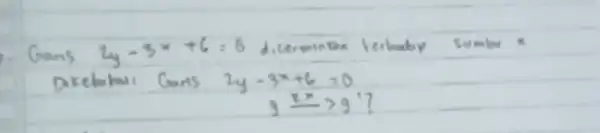 Garis 2y - 3x + 6 = 0 dicerminkan terhadap sumbu x
Diketahui Garis 2y - 3x + 6 = 0
g x > g'?